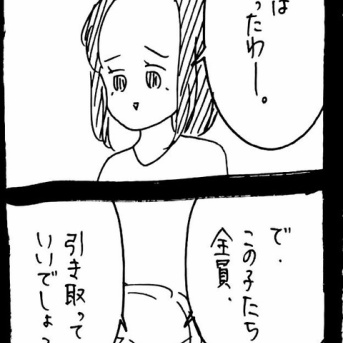 は
ったわー。
で、
この子たち
全員、
引き取って
いいでしょ